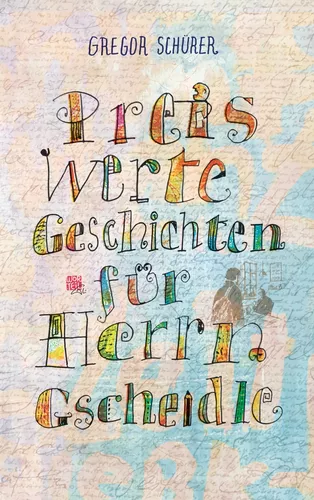 GREGOR SCHÜRER
Preis
werte
Geschichten
für
Herrn
Gscheidle